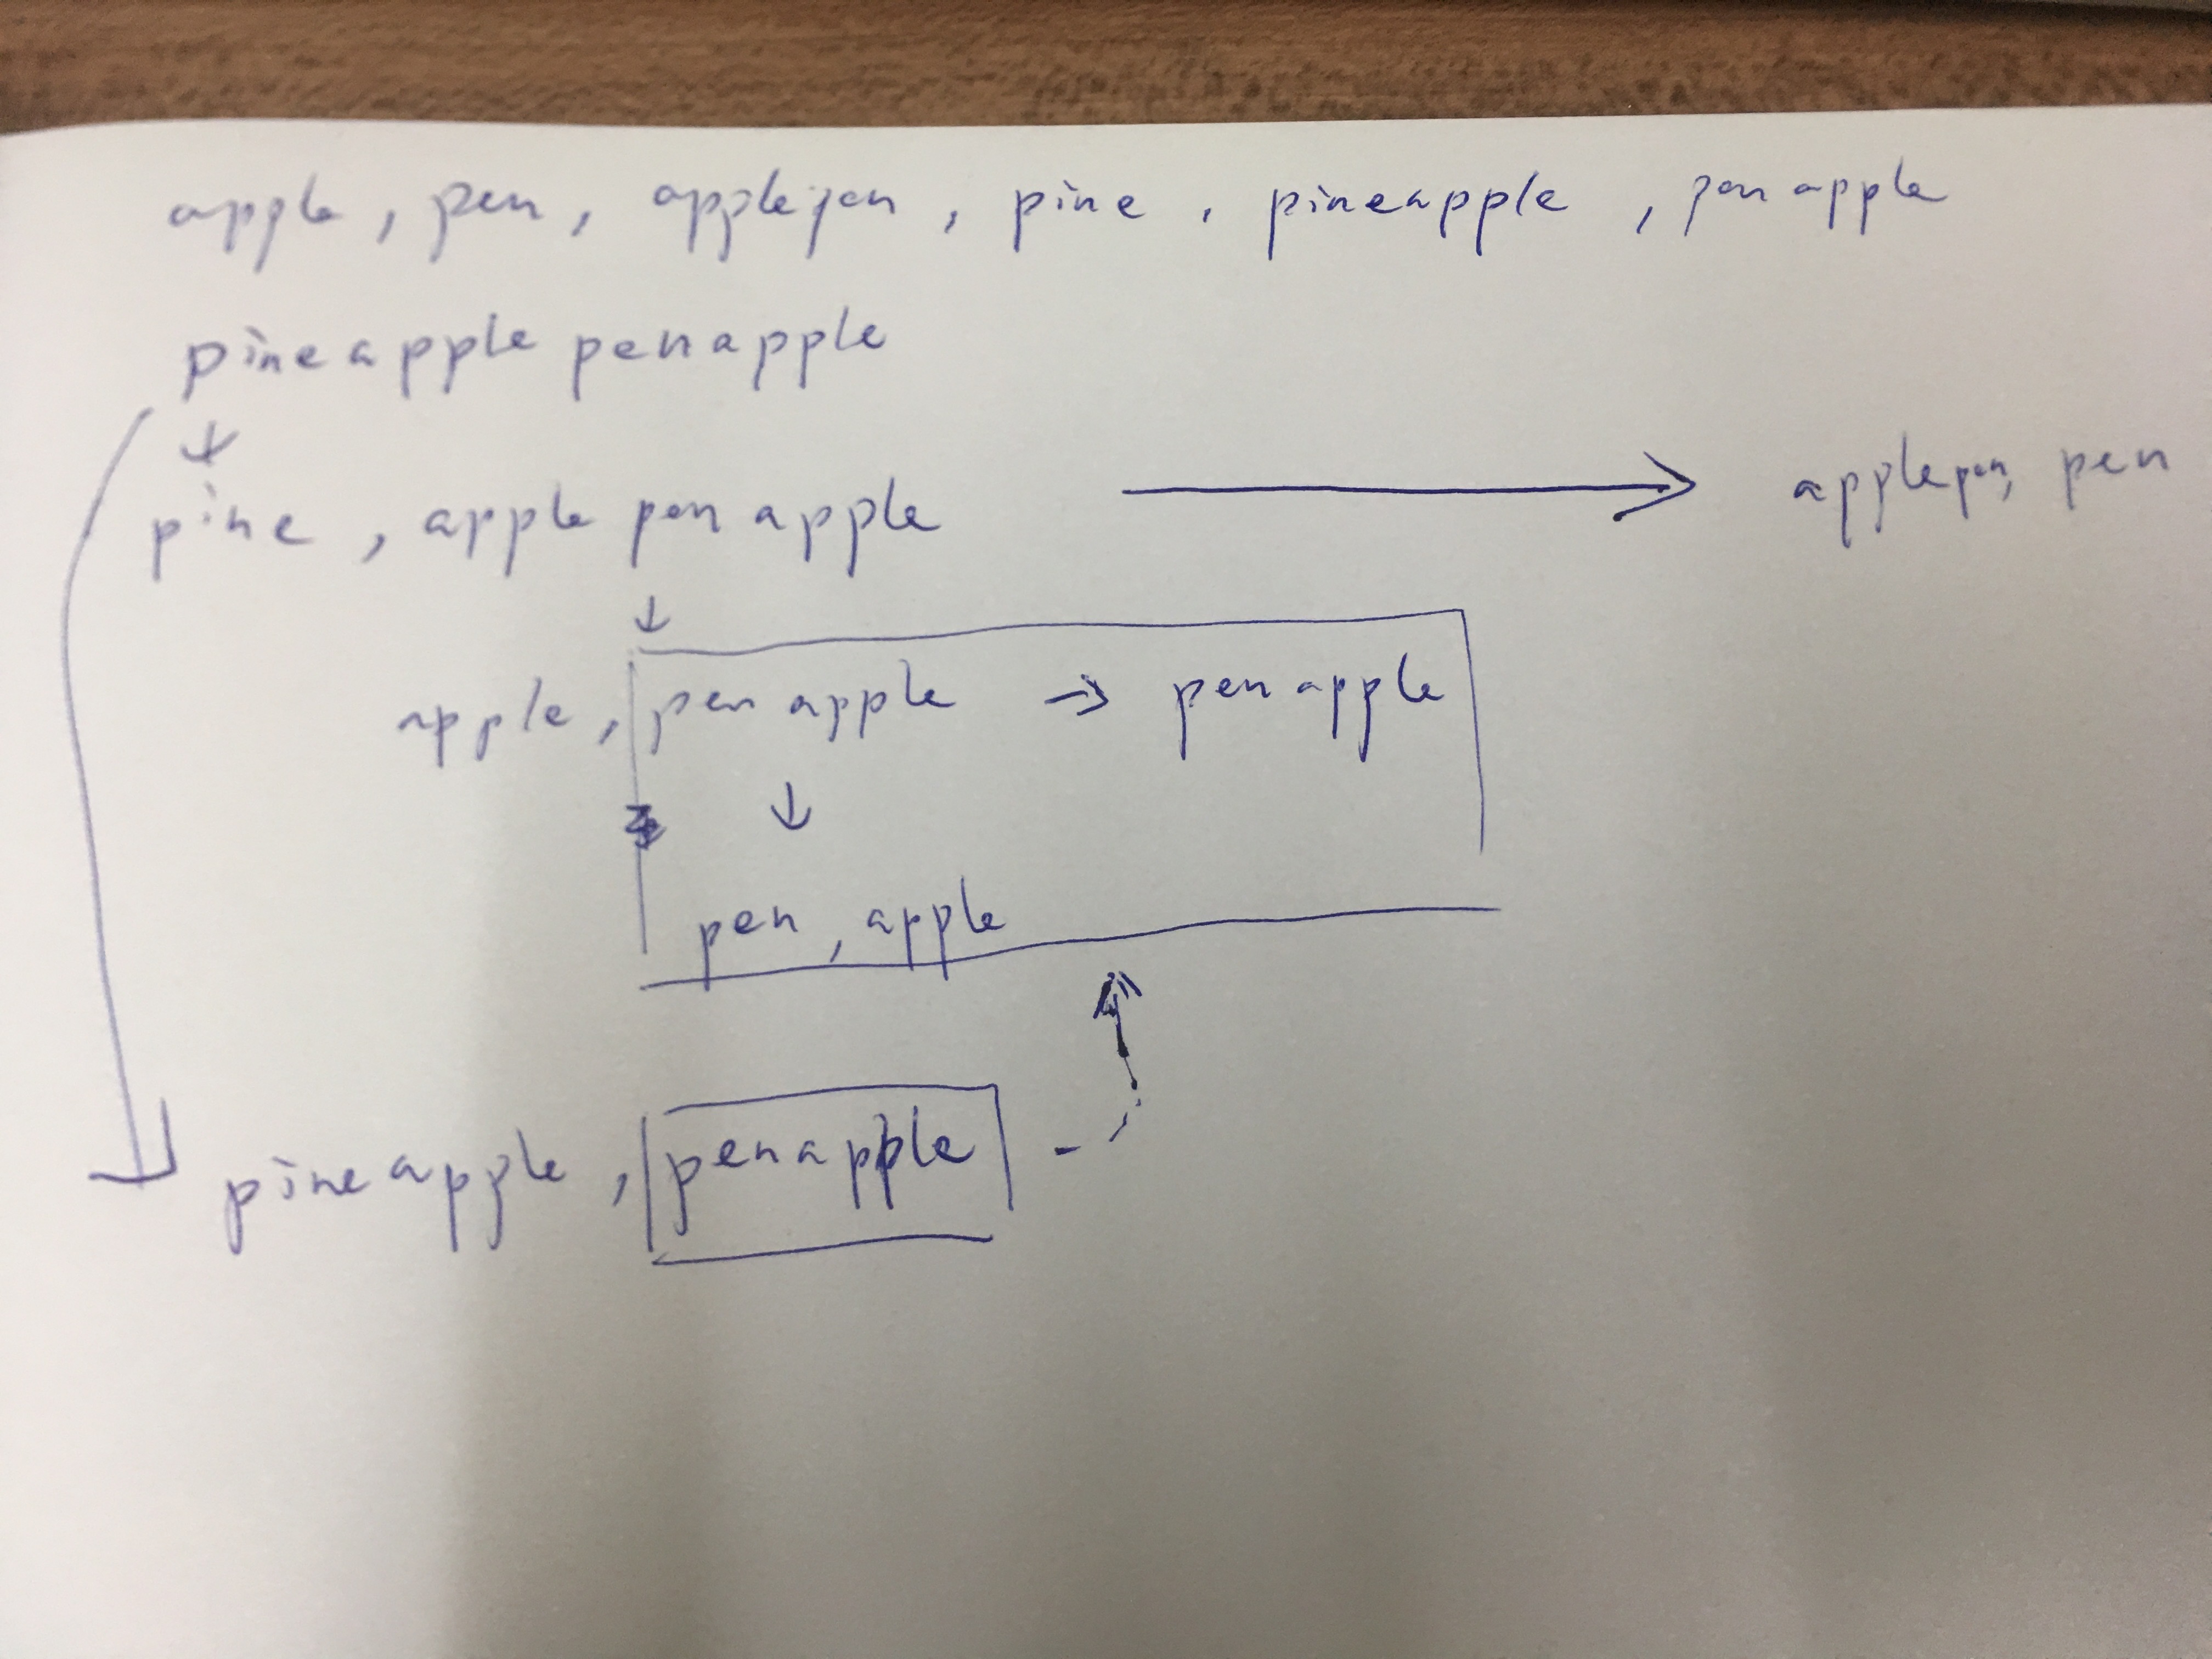 apple, pen, applepen, pine, pineapple, penapple
pineapplepenapple
↓
pine, applepenapple → applepen, pen
↓
apple, penapple → penapple
↓
pen, apple
pineapple, penapple